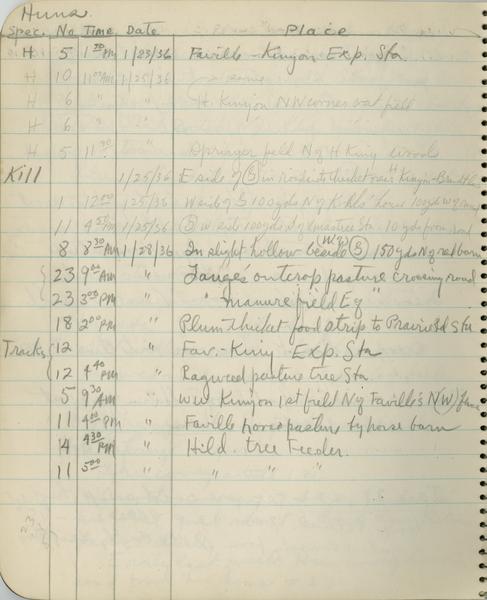 Huns.
Spec. No. Time Date Place
H 5 1 30 PM 1/23/36 Faville-Kinyon Exp. Sta
H 10 11 00 AM 1/25/36 " same
H 6 " " H. Kinyon NW corner oat field
H 6 " "
H 5 11 30 " Springer field N of H King woods
Kill 1/25/36 E side of (S) in roadside thicket near Kinyon-
1 12 00 1/25/36 W side of S 100 yds N of house 100 yds W of road
11 4 50 PM 1/25/36 (S) W side 100 yds Sta 10 yds from road
8 8 30 AM 1/28/36 In slight hollow beside (W.W.) (S) 150 yds N of red barn
23 9 00 AM " Lange's outcrop pasture crossing road
23 3 00 PM " " manure field E of "
18 2 00 PM " Plum thicket food strip to Prairie Sta
Tracks 12 " Fav.-King Exp. Sta
12 4 40 PM " Ragweed pasture tree Sta
5 9 30 AM " WW Kinyon 1st field N of Faville's N(W)
11 4 00 PM " Faville horse pasture by horse barn
14 4 30 PM " Hild. tree Feeder.
11 5 00 " " "